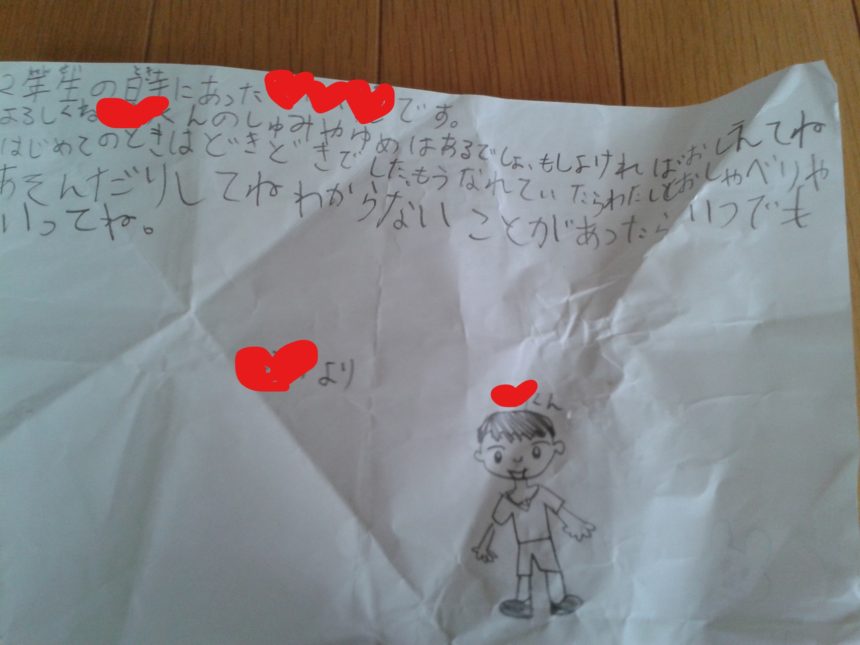 2年生の時にあった です。
よろしくね くんのしゅみやゆめはあるでしょ、もしよければおしえてね
はじめてのときはどきどきでした、もうなれていたらわたしとおしゃべりや
あそんだりしてねわからないことがあったらいつでも
いってね。
より
くん